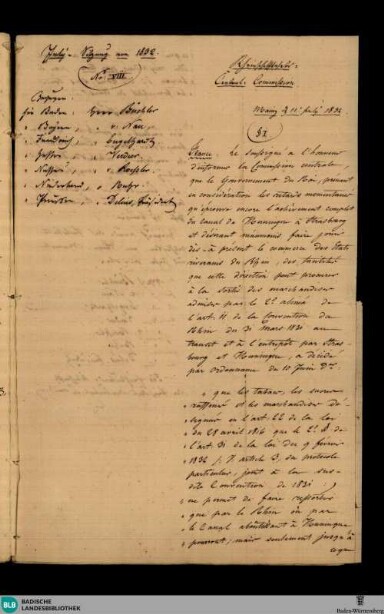 July - Sitzung von 1832.
No. XIII.
für Baden: Herr Büchler
" Bayern, " v. Nau
" Frankreich, " Engelhardt
" Hessen, " Verdier
" Nassau, " v. Roessler
" Niederland, " Ruhr
" Preussen " Delius, Präsident
Central-Commission
Mainz d. 11 July 1832
§ 2
France. Le soussigné a l'honneur
d'informer la Commission centrale
que le Gouvernement du Roi, prenant
en considération les retards momentanés
qu'éprouve encore l'achèvement complet
du canal de Huningue à Strasbourg
et désirant néanmoins faire jouir
dès-à-présent le commerce des Etats
riverains du Rhin, des facilités
que cette direction peut procurer
à la sortie des marchandises
admises par le 2e alinéa de
l'art. 11 de la Convention du
Rhin du 31 Mars 1831 au
transit et à l'entrepôt par Stras
bourg et Huningue, a décidé
par ordonnance du 10 Juin dr.
" que les tabacs, les sucres
" raffinés et les marchandises dé-
" signées en l'art. 22 de la loi
" du 28 avril 1816 que le 2e §. de
" l'art. 3 de la loi du 9 février
" 1832 article 3, du protocole
" particulier, joint à la sus-
" dite Convention de 1831
" ne permet de faire réexporter
" que par le Rhin ou par
" le Canal aboutissant à Huningue
" pourront, mais seulement jusqu'à
BLB
BADISCHE
LANDESBIBLIOTHEK
Baden-Württemberg